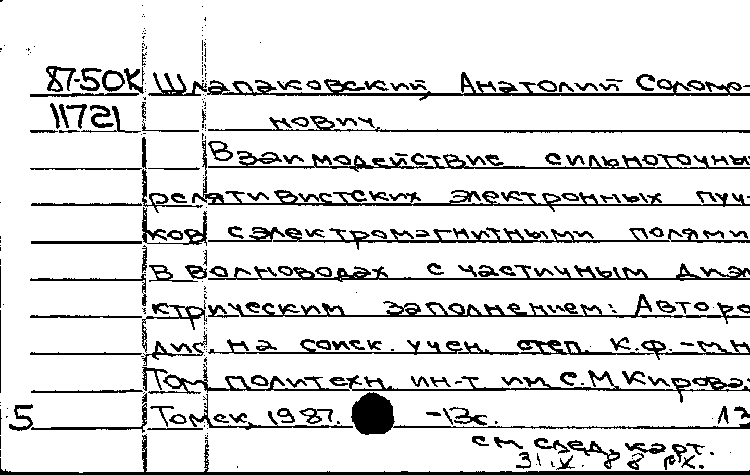 87-50К Шлапаковский, Анатолий Соломо-
11721 нович.
Взаимодействие сильноточны
релятивистских электронных пуч-
ков с электромагнитными полями
в волноводах с частичным диэл
ктрическим заполнением: Авторе
дис. на соиск. учен. степ. к.ф.-м.н
Том политехн. ин-т им. С.М. Кирова.
5 Томск, 1987. -13с. 13
см след. карт.
31.V.88